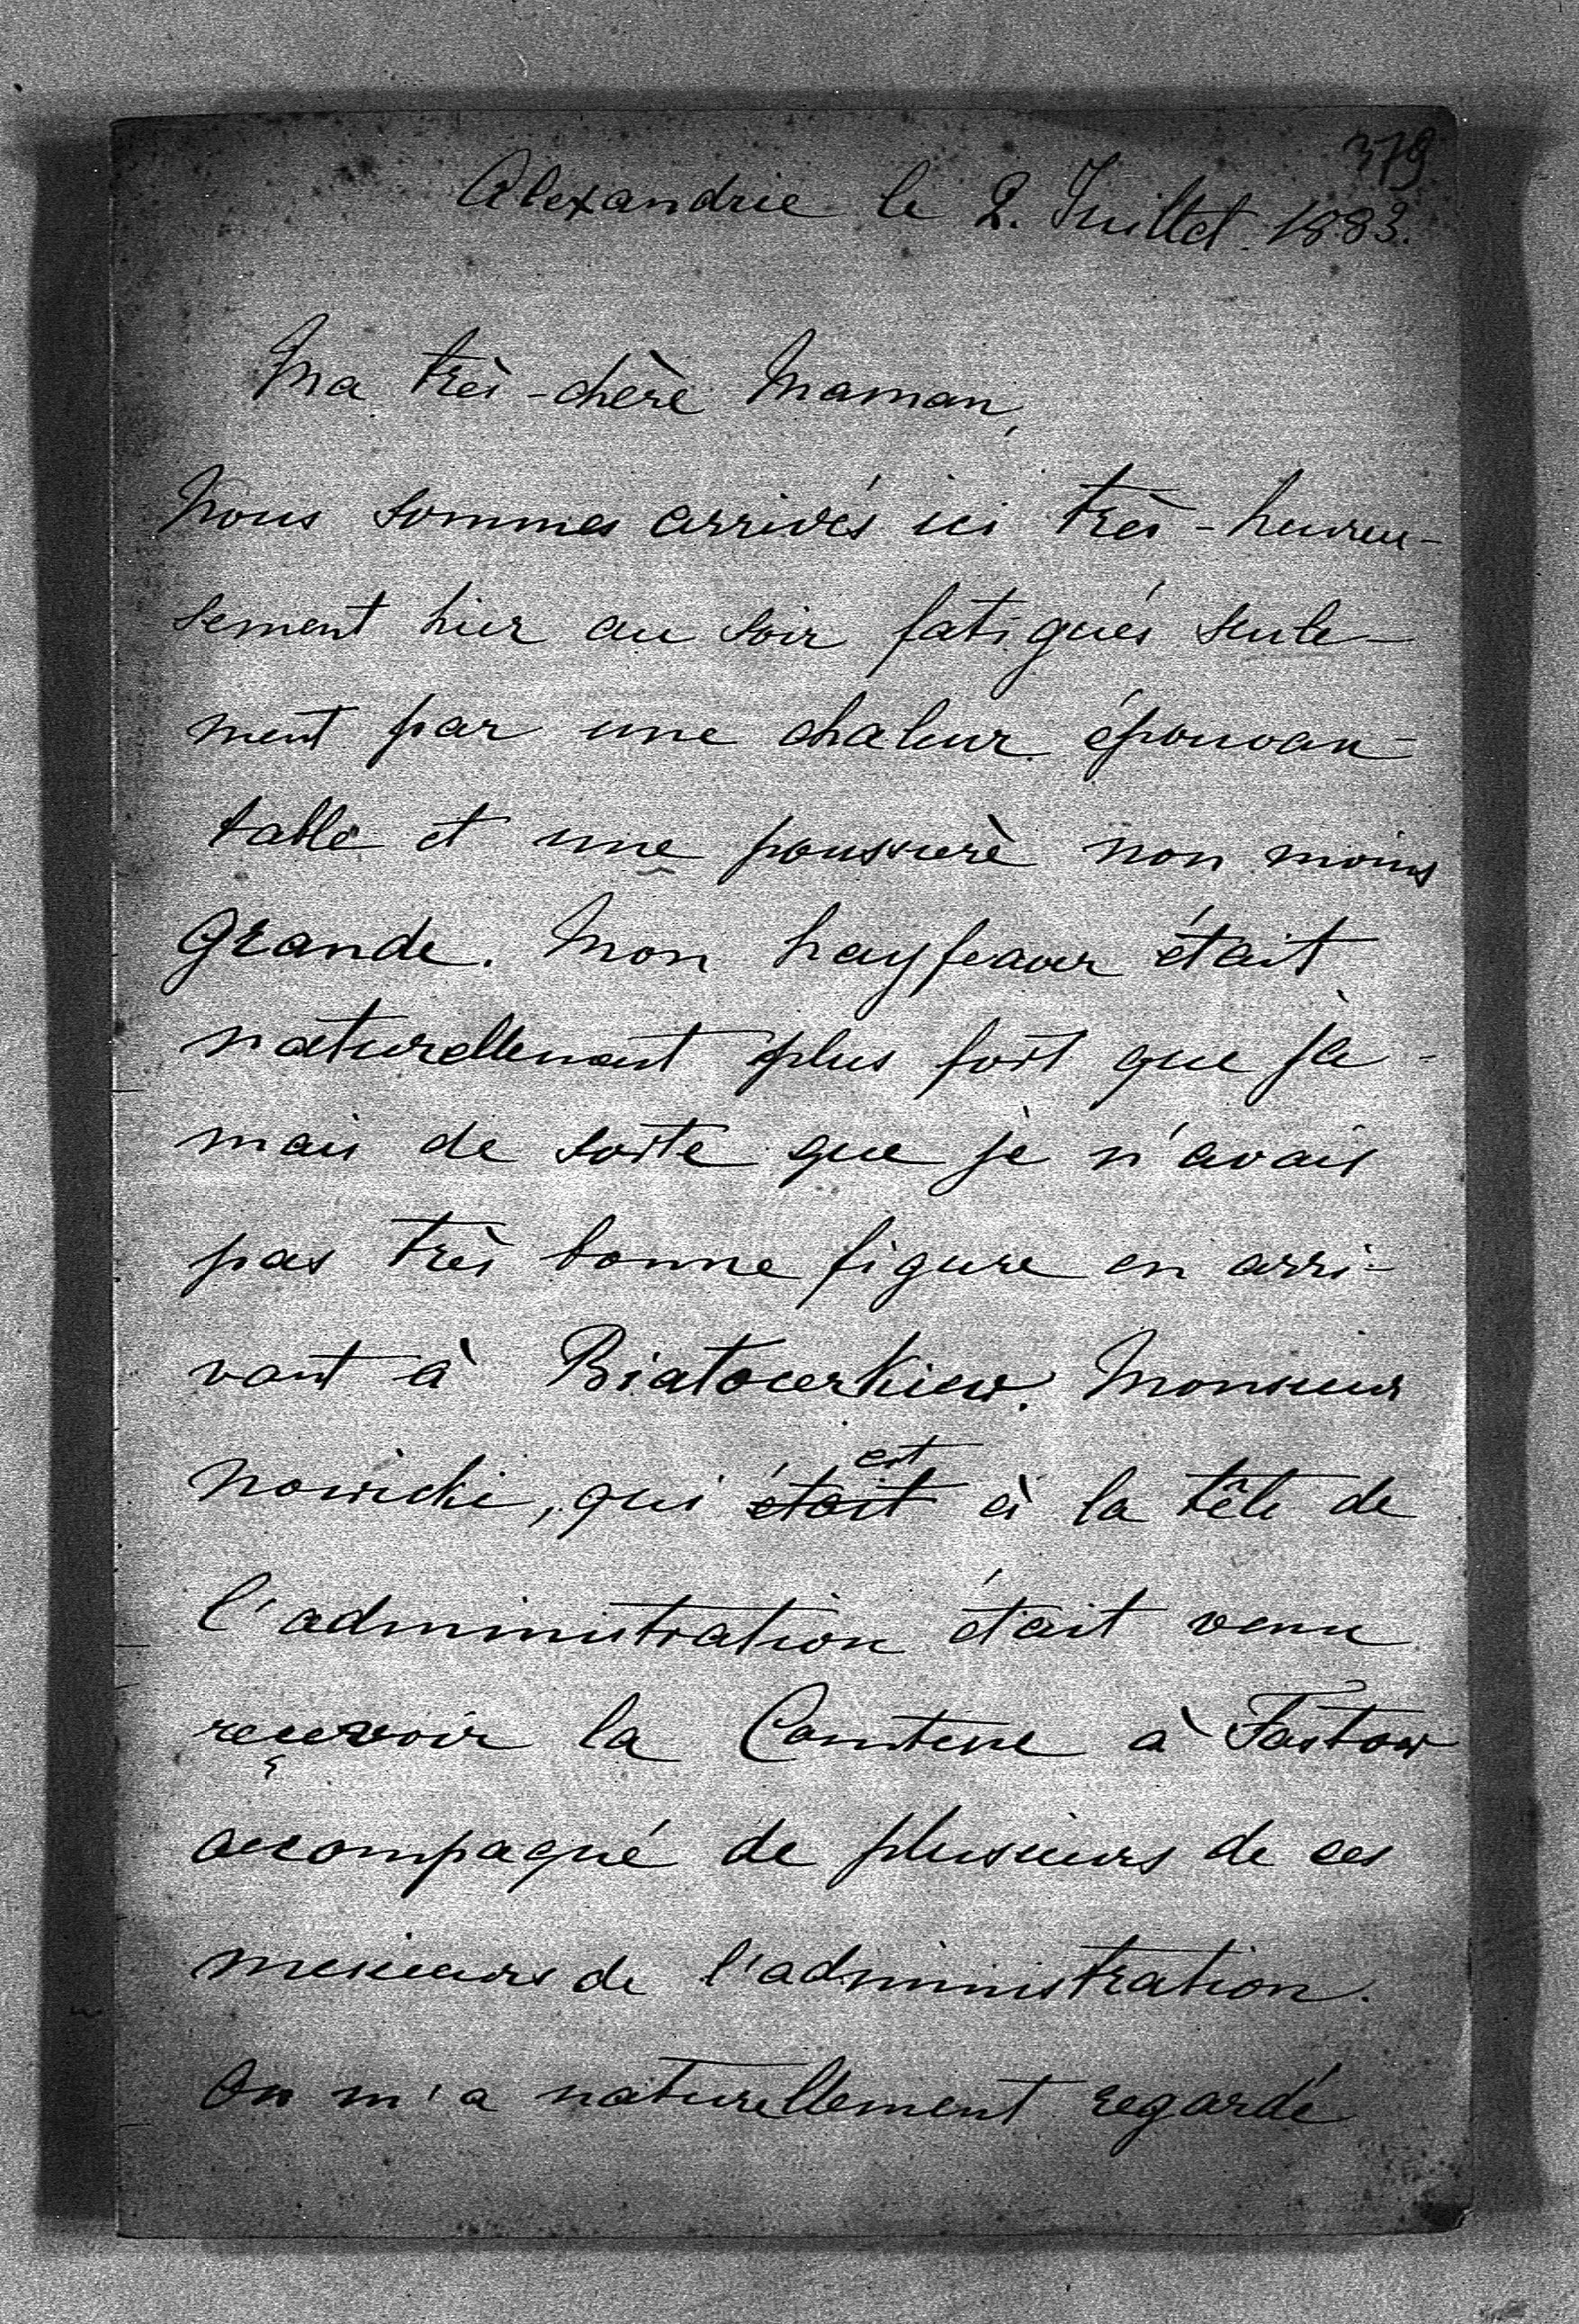 379
Alexandrie le 2. Juillet 1883.
Ma très-chère Maman,
Nous sommes arrivés ici très-heureu-
sement hier au soir fatigués seule-
ment par une chaleur épouvan-
table et une poussière non moins
grande. Mon hayfeaver était
naturellement plus fort que ja-
mais de sorte que je n'avais
pas très bonne figure en arri-
vant à Biatocerkiew. Monsieur
Nowicki, qui était est à la tête de
l'administration était venu
reçevoir la Comtesse à Fastow
accompagné de plusieurs de ces
messieurs de l'administration.
On m'a naturellement regardé